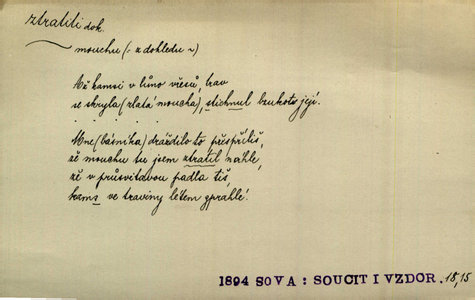 ztratiti dok.
mouchu (: z dohledu ~)
Až kamsi v lůno vřesů, trav
se skryla (zlatá moucha), stichnul bzukot její.
. . . . .
Mne (básníka) dráždilo to přespříliš,
že mouchu tu jsem ztratil náhle,
že v průsvitavou padla tiš,
kams ve traviny létem zprahlé.
1894 SOVA : SOUCIT I VZDOR. 18, 15